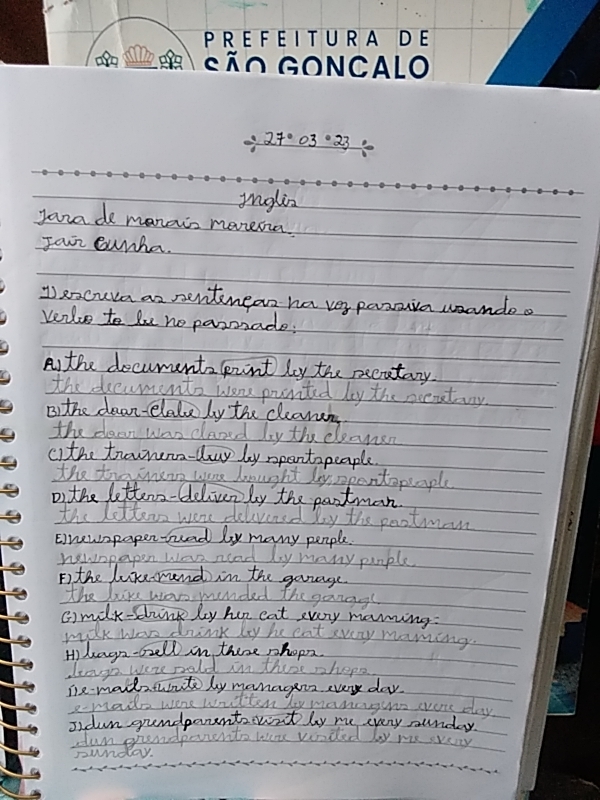 PREFEITURA DE
SÃO GONÇALO
27 03 23
Inglês
Iara de morais moreira.
Jair Cunha.
1) escreva as sentenças na voz passiva usando o
verbo to be no passsado:
A) the documents print by the secretary.
the documents were printed by the secretary.
B) the door-clobe by the cleaner.
the door was closed by the cleaner
C) the trainers-buy by sportspeaple.
the trainers were bought by sportspeaple
D) the letters-deliver by the postman.
the letters were delivered by the postman
E) newspaper-read by many people.
newspaper was read by many people.
F) the bike-mend in the garage
the bike was mended the garage
G) milk-drink by her cat every morning.
milk was drink by he cat every morning.
H) bags-sell in these shops.
bags were sold in these shops
I) e-mails-write by managers every day.
e-mails were written by managins every day
J) dun grendparents-visit by me every sunday.
dun grendparents were visited by me every
sunday.